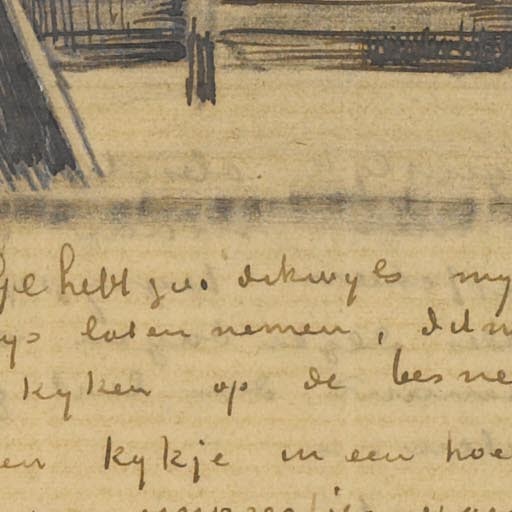 Gij hebt zoo dikwyls my
ys laten nemen, dit m
kyken op de besne
en kykje in een hoe